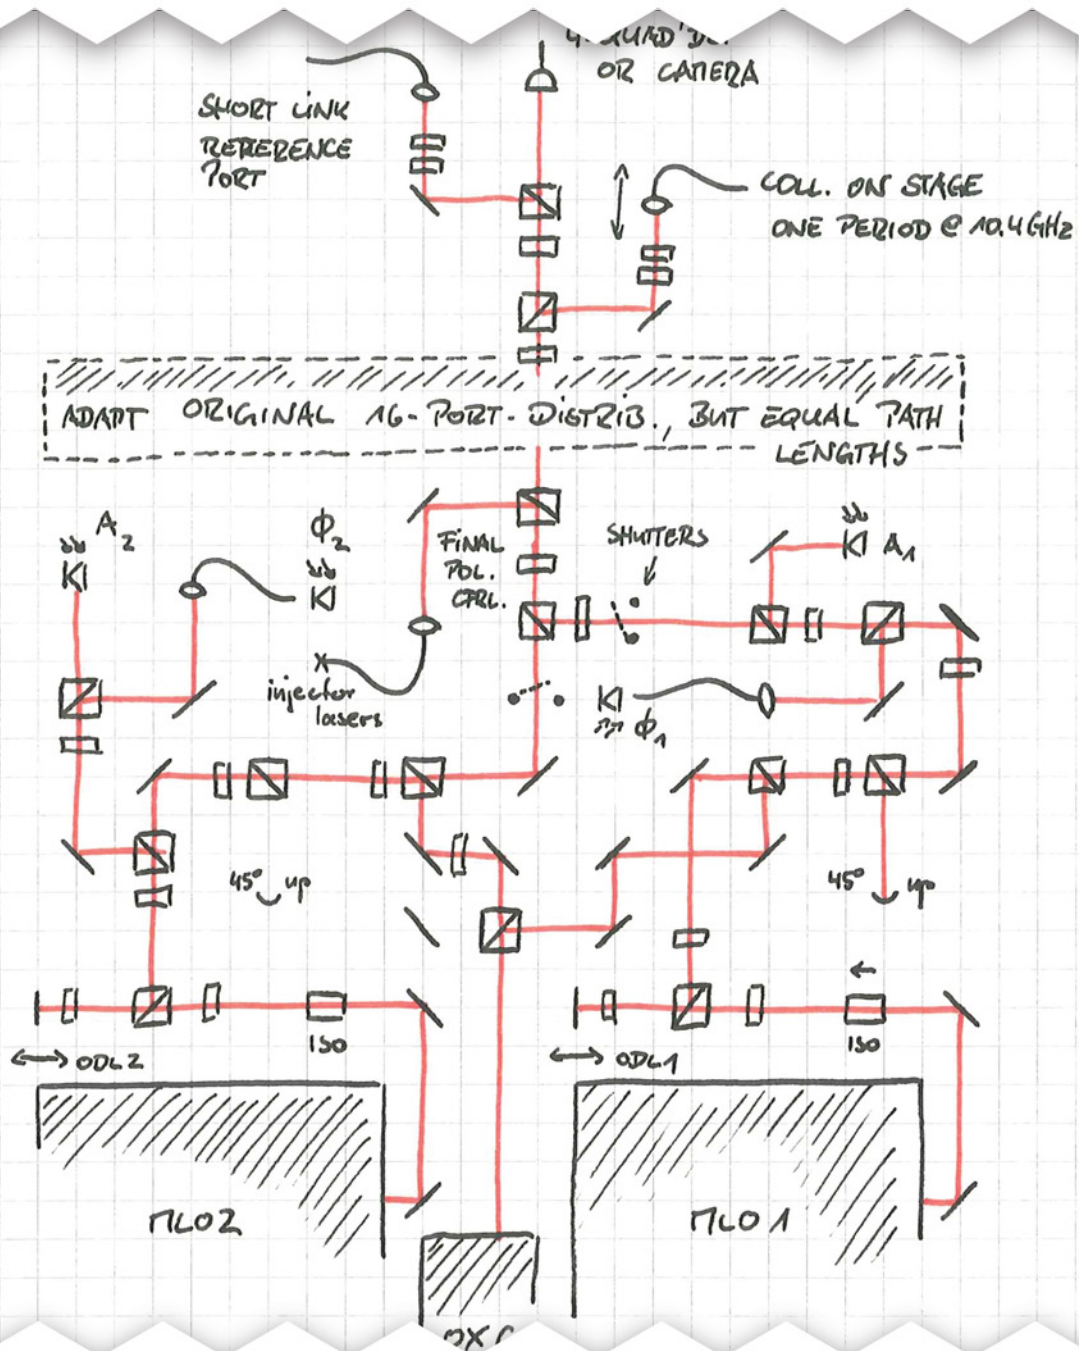 OR CAMERA
SHORT LINK
REFERENCE
PORT
COLL. ON STAGE
ONE PERIOD @ 10.4 GHz
ADAPT ORIGINAL 16-PORT-DISTRIB., BUT EQUAL PATH
LENGTHS
A2
Φ2
FINAL
POL.
CTRL.
SHUTTERS
A1
injector
lasers
Φ1
45° up
45° up
ISO
ISO
ODL2
ODL1
MLO2
MLO1